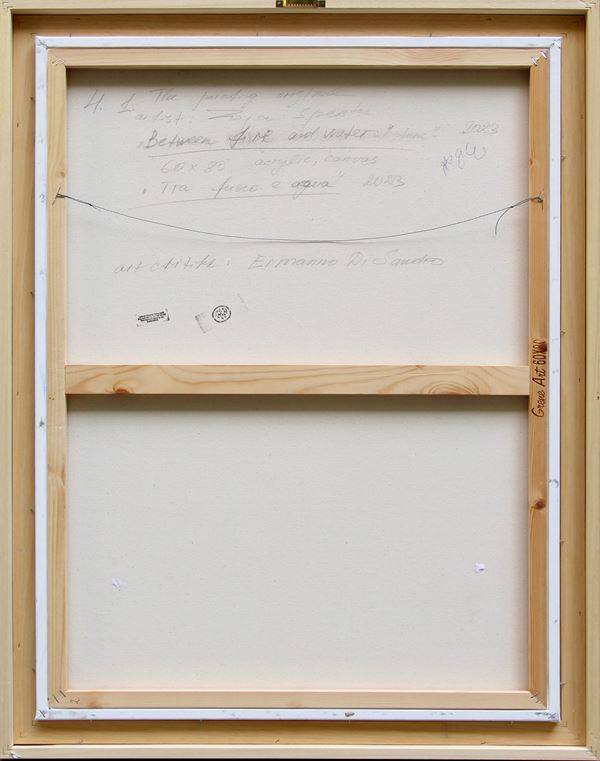 4. 1 The painting original
artist: Spenta
"Between fire and water" 2023
60 x 80 acrylic, canvas
"Tra fuoco e aqua" 2023
art critik: Ermanno Di Sandro
Grene Art 60X80